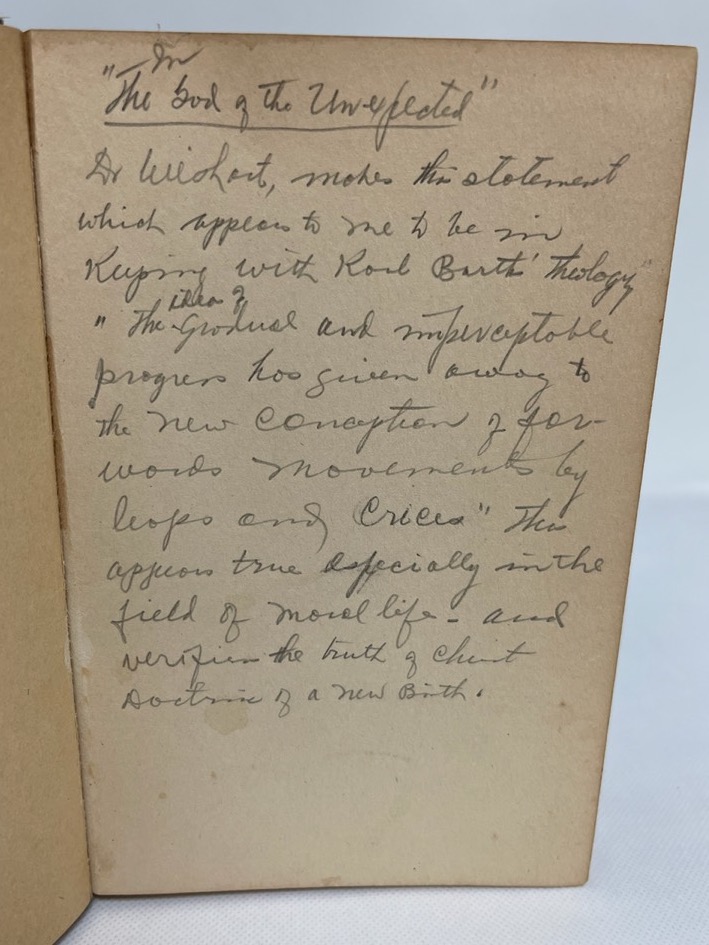 In
"The God of the Unexpected"
Dr Wishart, makes this statement
which appears to me to be in
Keeping with Karl Barth' theology
idea of
" The Gradual and imperceptable
progress has given away to
the new conception of for-
wards movements by
leaps and Crices" This
appears true especially in the
field of moral life - and
verifies the truth of Christ
Doctrine of a new Birth.